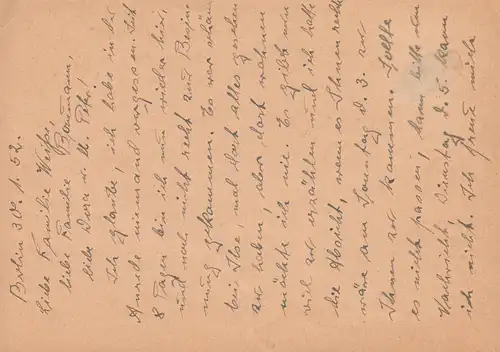 Berlin 30. 1. 52.
Liebe Familie Weiße,
liebe Familie Baumann,
liebe Dora u. Peter!
Ich glaube, ich habe in der
Stunde niemand vergessen. Seit
8 Tagen bin ich nun wieder hier,
und noch nicht recht zur Besin-
nung gekommen. Es war schön
bei Ilse, mal dort alles gesehen
zu haben, aber dort wohnen
möchte ich nie. Es gibt nun
viel zu erzählen und ich hatte
die Absicht, wenn es Ihnen recht
wäre am Sonntag d. 3. zu
Ihnen zu kommen. Sollte
es nicht passen, dann bitte um
Nachricht. Dienstag d. 5. kann
ich nicht. Ich freue mich